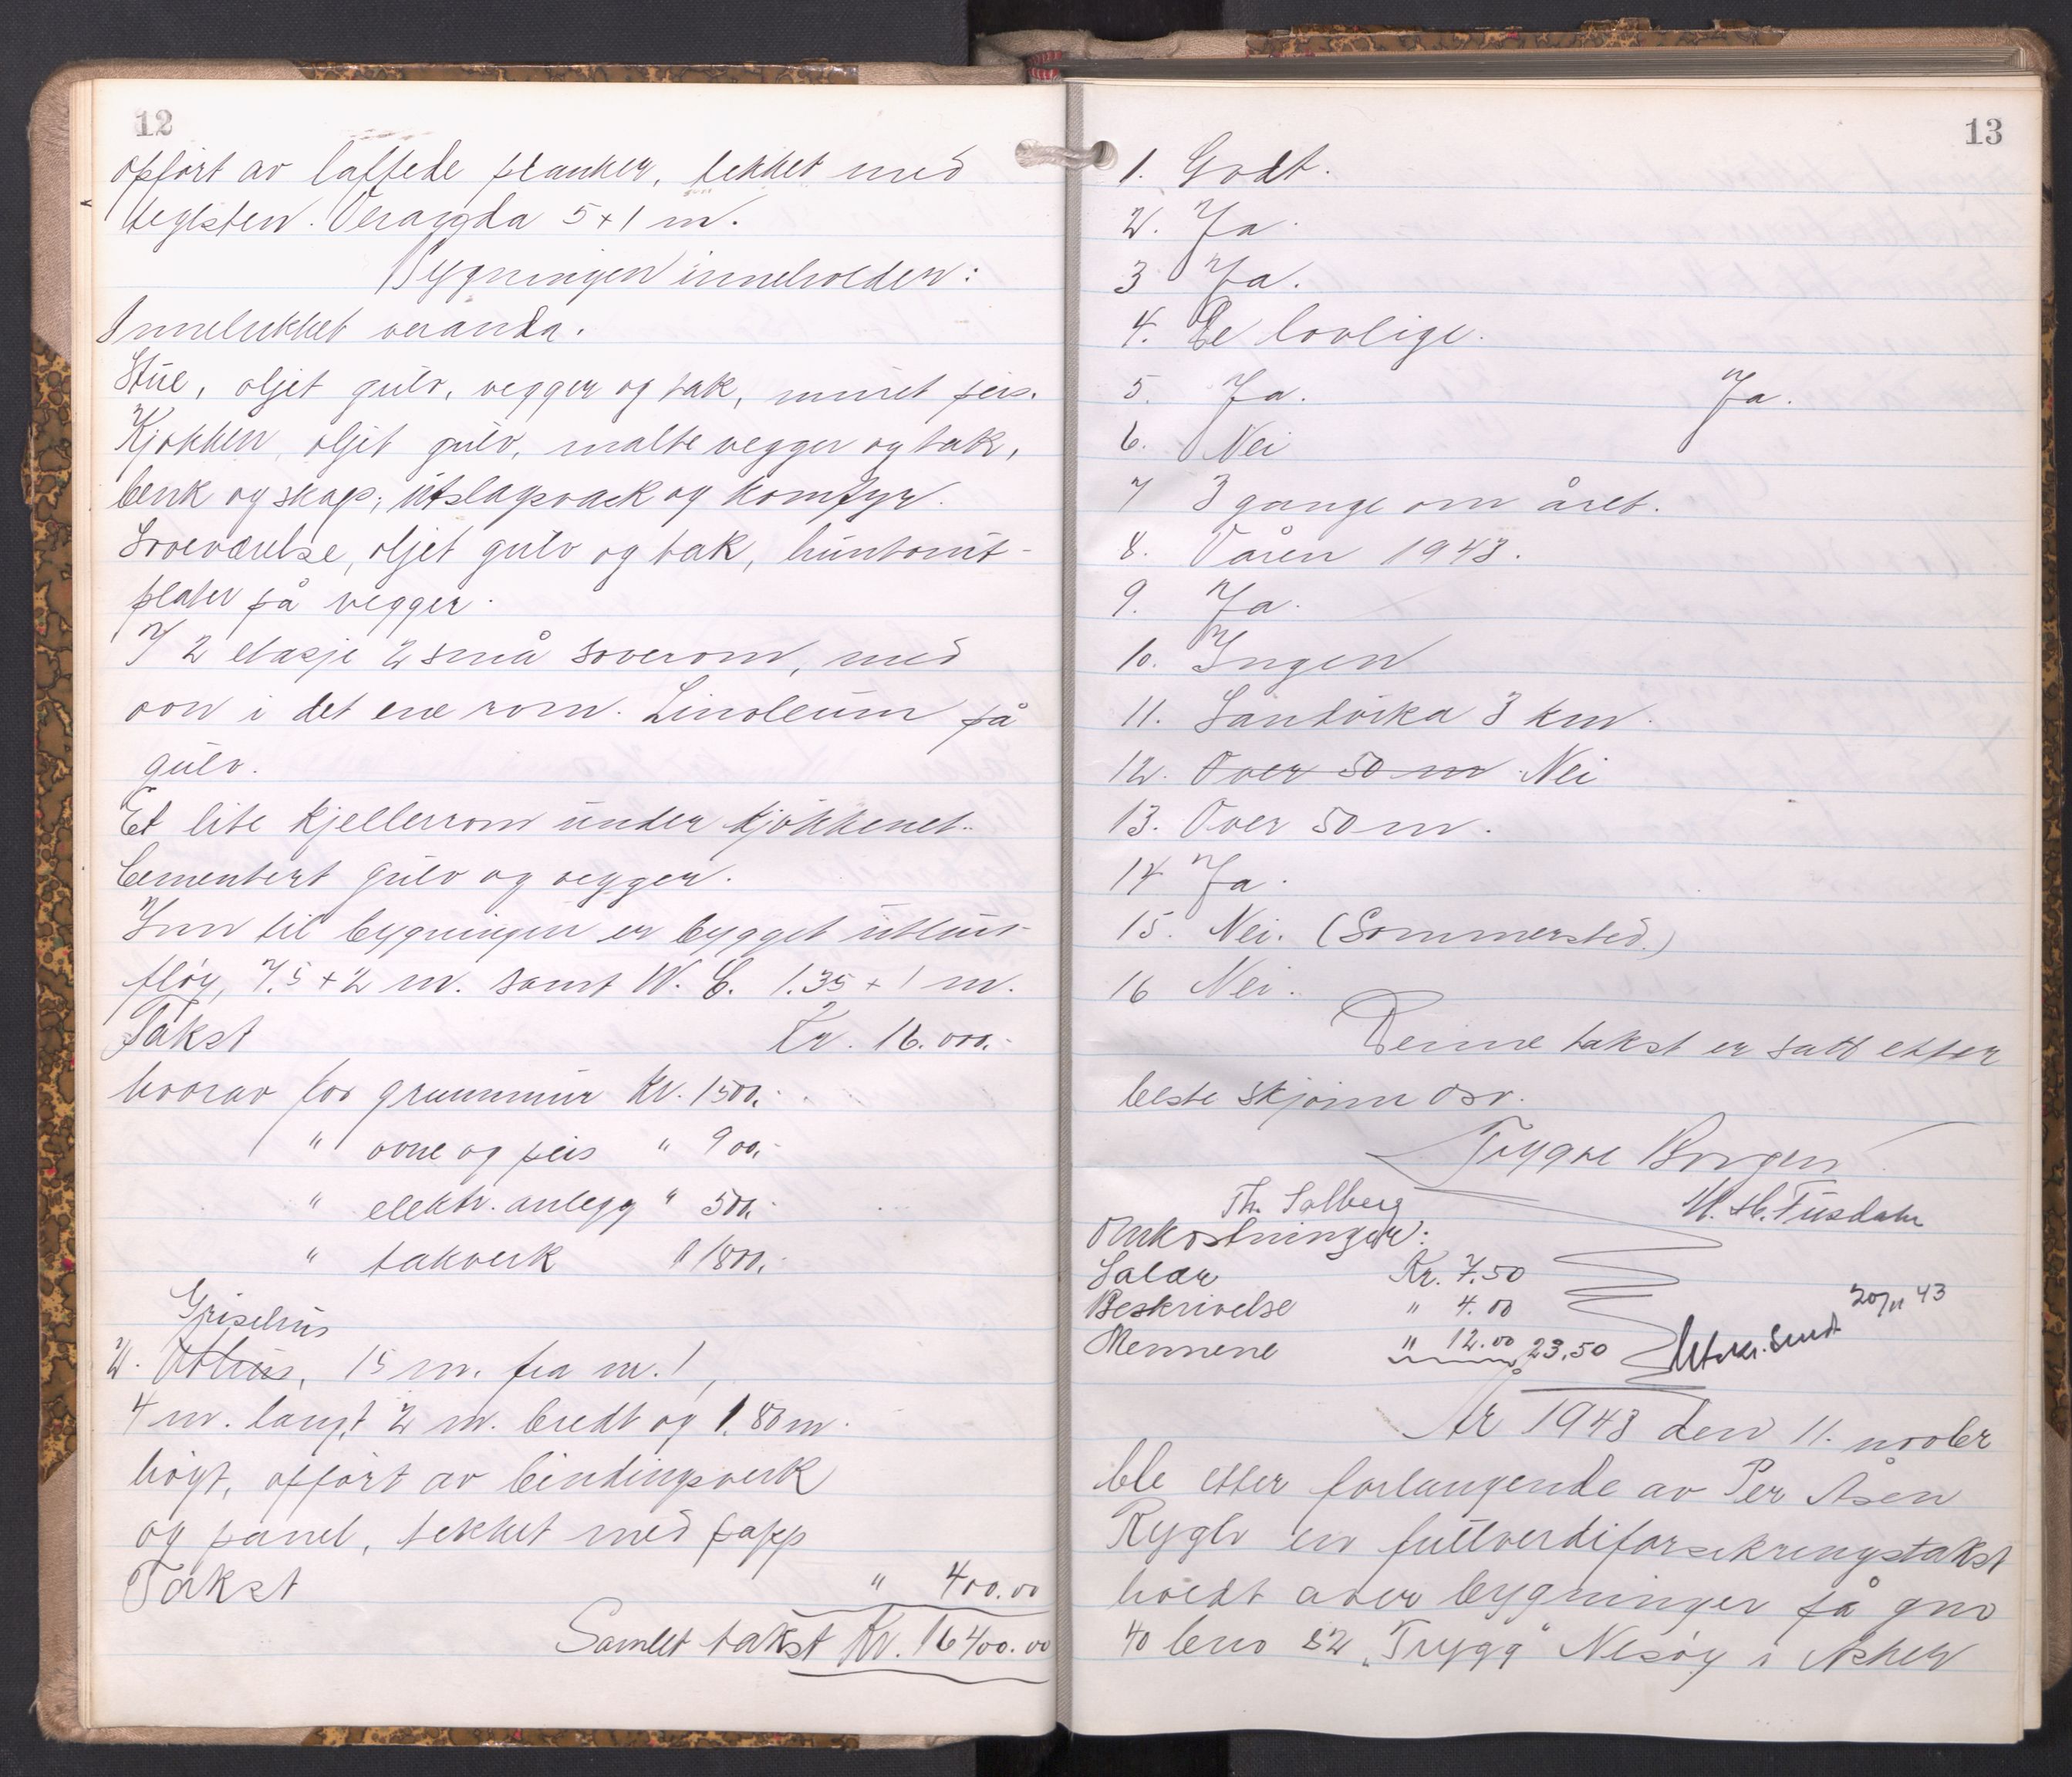 12
opført av laftede planker, tekket med
teglsten. Veranda 5 + 1 m.
Bygningen inneholder:
Innelukket veranda.
Stue, oljet gulv, vegger og tak, muret peis.
Kjøkken, oljet gulv, malte vegger og tak,
benk og skap, utslagsvask og komfyr.
Soveværelse, oljet gulv og tak, huntonit-
plater på vegger.
I 2 etasje 2 små soverom, med
ovn i det ene rom. Linoleum på
gulv.
Et lite kjellerrom under kjøkkenet.
Cementert gulv og vegger.
Inn til bygningen er bygget uthus-
fløy, 7.5 + 2 m. samt W. C. 1.35 + 1 m.
Takst Kr. 16.000.-
hvorav for grunnmur Kr. 1500.-
" ovne og peis " 900.-
" elektr. anlegg " 500.-
" takverk " 1800.-
Grisehus
2. Uthus, 15 m. fra nr. 1,
4 m. langt, 2 m. bredt og 1.80 m.
høyt, oppført av bindingsverk
og panel, tekket med papp
Takst " 400.00
Samlet takst Kr. 16400.00
13
1. Godt.
2. Ja.
3 Ja.
4. De lovlige.
5. Ja. Ja.
6. Nei
7 3 gange om året.
8. Våren 1943.
9. Ja.
10. Ingen
11. Sandvika 3 km.
12. Over 50 m Nei
13. Over 50 m.
14 Ja.
15. Nei. (Sommersted.)
16 Nei.
Denne takst er satt etter
beste skjønn osv.
Trygve Borgen
Th. Solberg M. H. Fusdahl
Omkostninger:
Salær Kr. 7.50
Beskrivelse " 4.00
Mennene " 12.00 23,50
Utskr. sendt 20/11 43
År 1943 den 11. novbr
ble etter forlangende av Per Åsen
Rygh en fullverdiforsikringstakst
holdt over bygninger på gno
40 bno 82 "Trygg" Nesøy i Asker